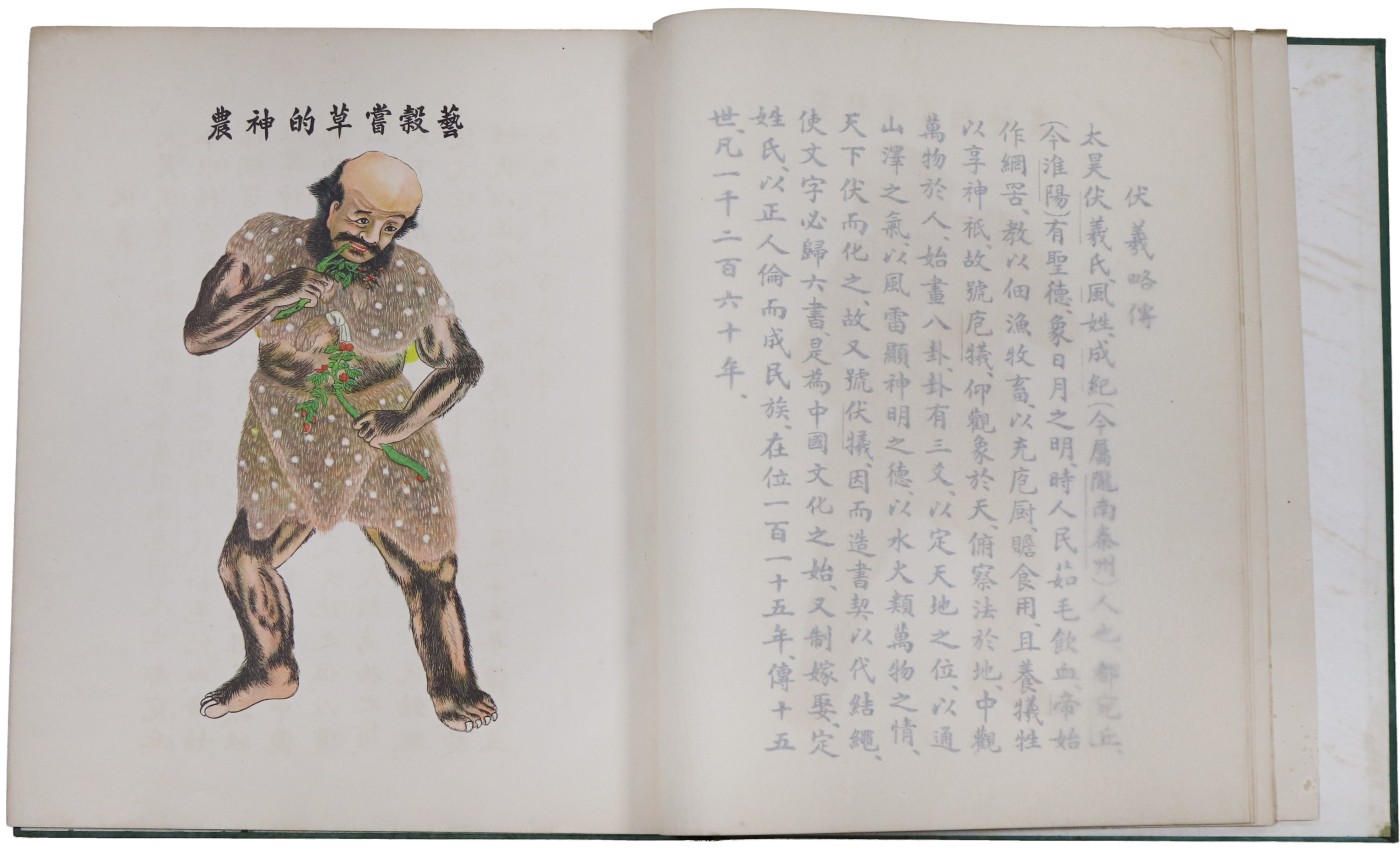 伏羲略傳
太昊伏羲氏、風姓、成紀(今屬隴南秦州)人也、都宛丘、
(今淮陽)有聖德、象日月之明、時人民茹毛飲血、帝始
作網罟、教以佃漁牧畜、以充庖厨、瞻食用、且養犧牲
以享神祇、故號庖犧、仰觀象於天、俯察法於地、中觀
萬物於人、始畫八卦、卦有三爻、以定天地之位、以通
山澤之氣、以風雷顯神明之德、以水火類萬物之情、
天下伏而化之、故又號伏犧、因而造書契、以代結繩、
使文字必歸六書、是為中國文化之始、又制嫁娶、定
姓氏、以正人倫而成民族、在位一百一十五年、傳十五
世、凡一千二百六十年、
藝穀嘗草的神農